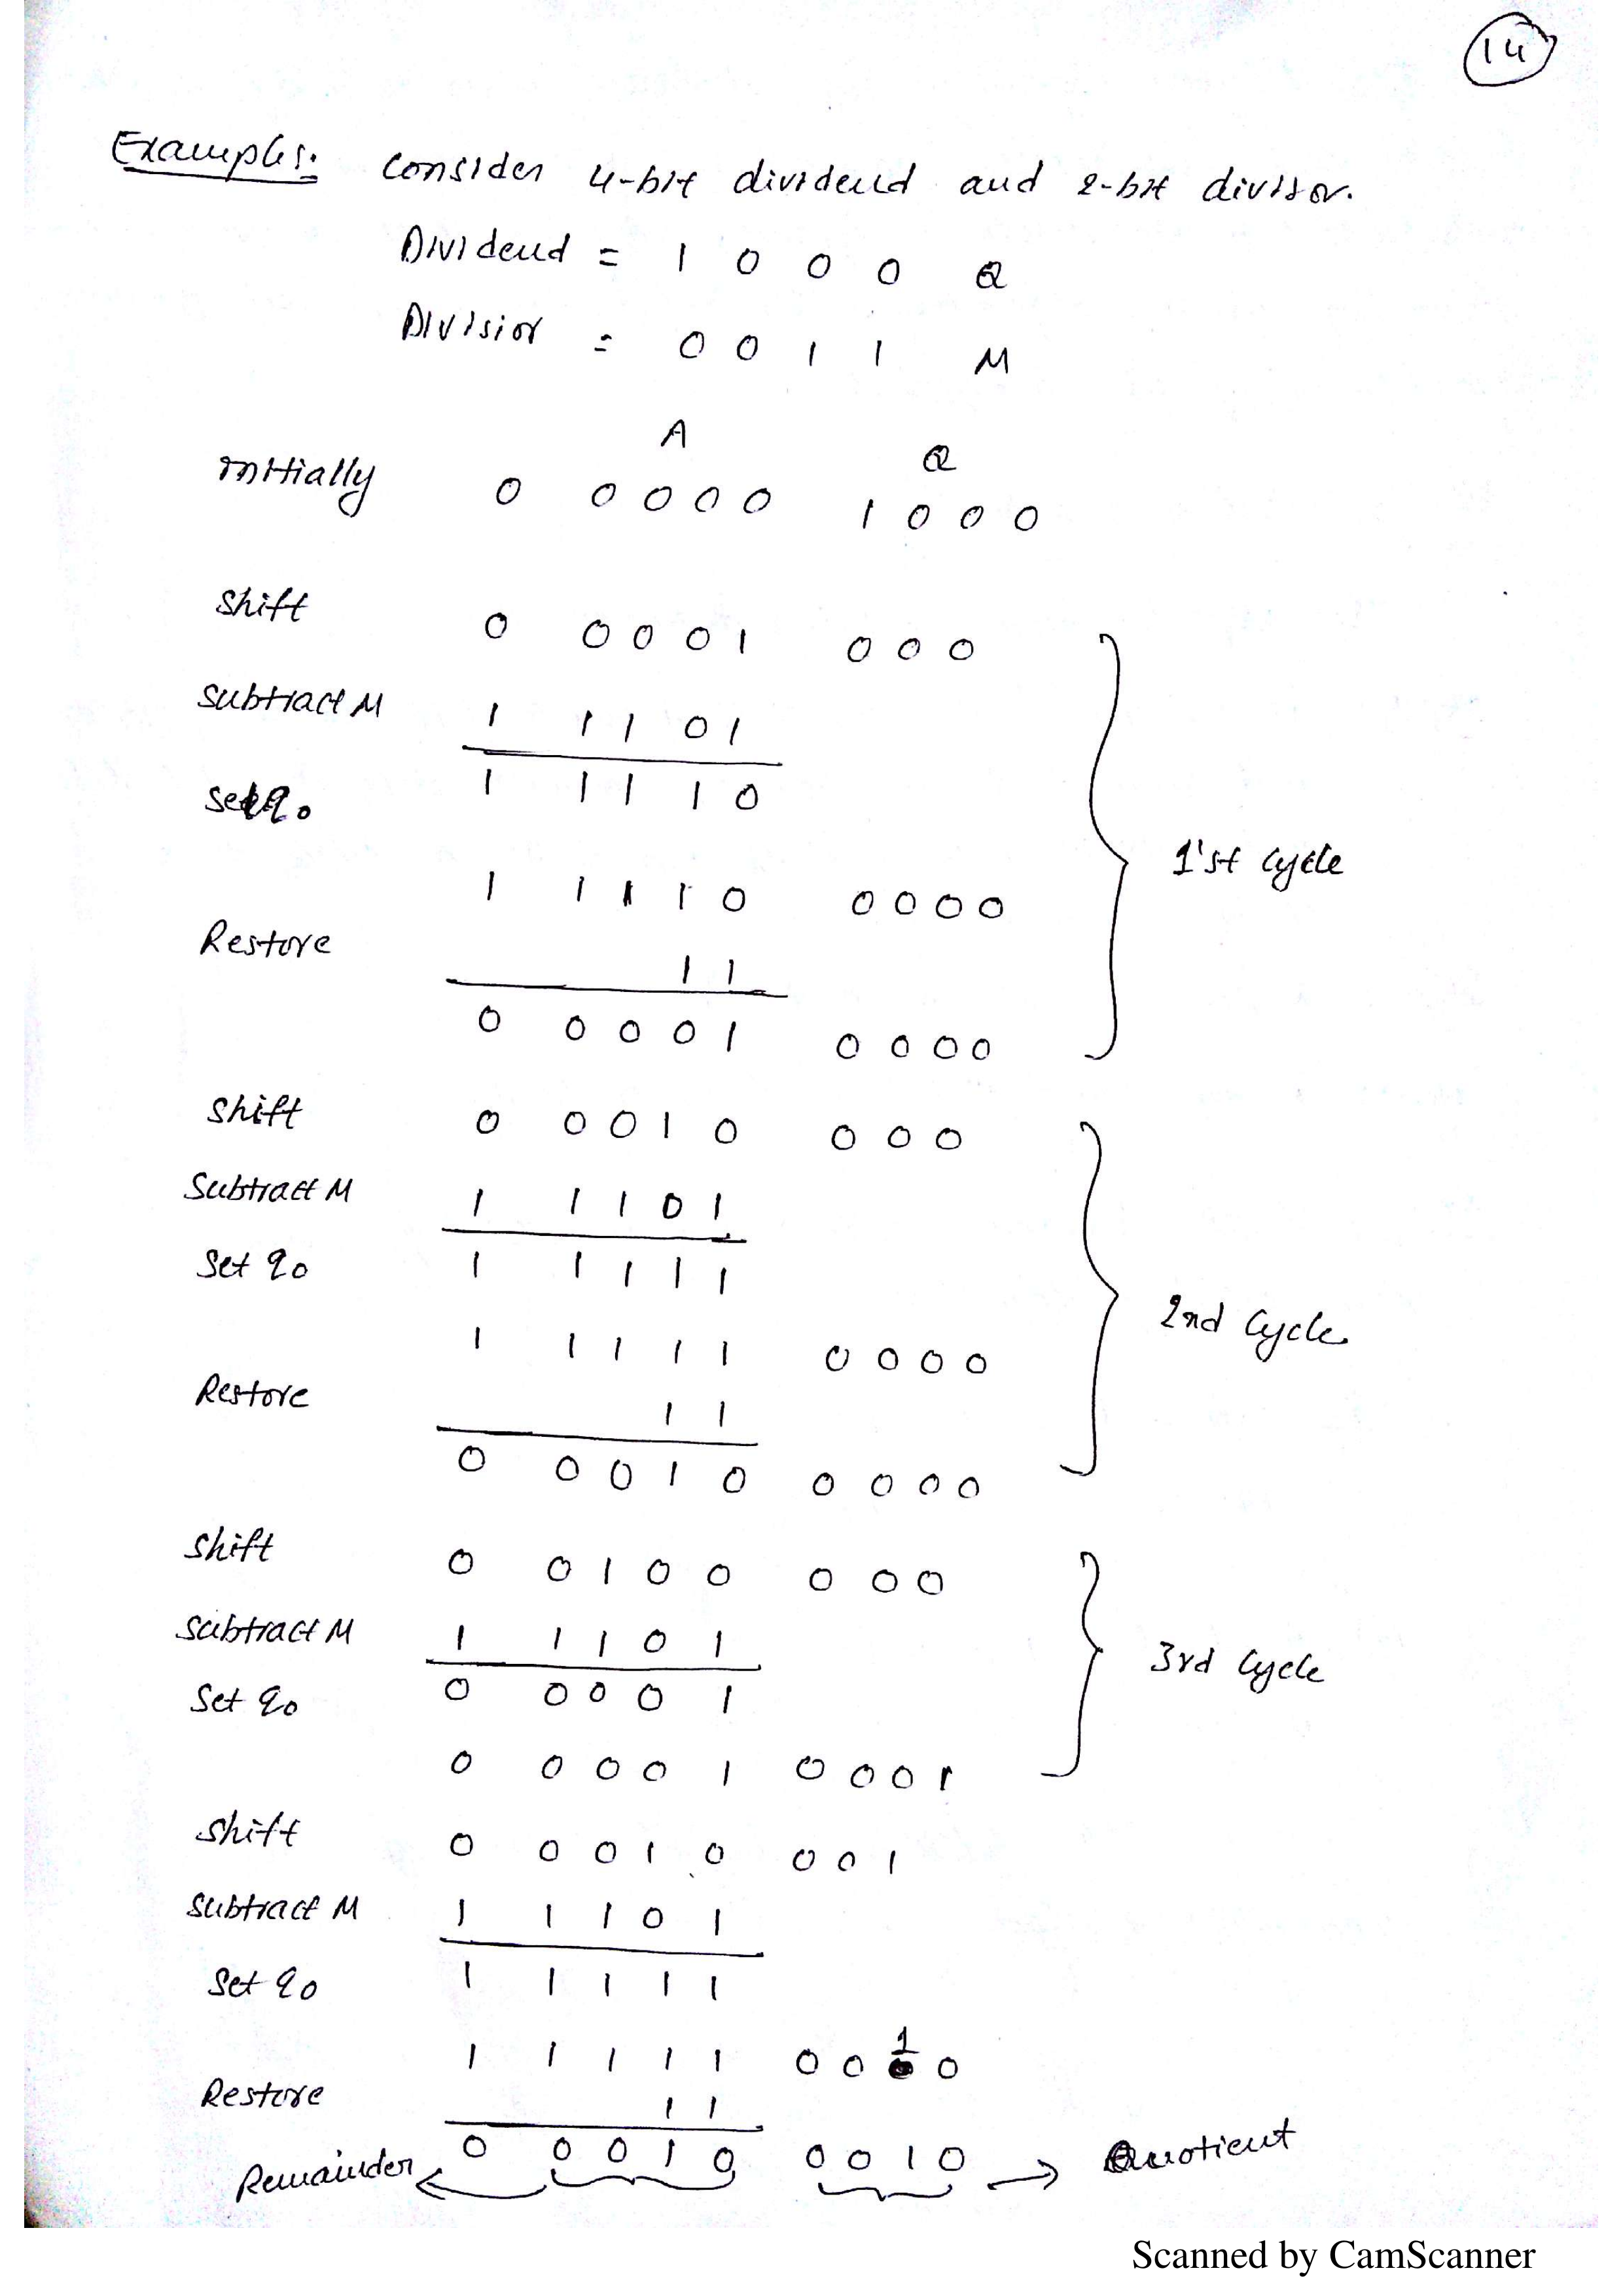 14
Examples: Consider 4-bit dividend and 2-bit divisor.
Dividend = 1 0 0 0 Q
Division = 0 0 1 1 M
A Q
initially 0 0 0 0 0 1 0 0 0
Shift 0 0 0 0 1 0 0 0
Subtract M 1 1 1 0 1
Set q0 1 1 1 1 0
1 1 1 1 0 0 0 0 0
1'st Cycle
Restore 1 1
0 0 0 0 1 0 0 0 0
Shift 0 0 0 1 0 0 0 0
Subtract M 1 1 1 0 1
Set q0 1 1 1 1 1
2nd Cycle
1 1 1 1 1 0 0 0 0
Restore 1 1
0 0 0 1 0 0 0 0 0
Shift 0 0 1 0 0 0 0 0
Subtract M 1 1 1 0 1
3rd Cycle
Set q0 0 0 0 0 1
0 0 0 0 1 0 0 0 1
Shift 0 0 0 1 0 0 0 1
Subtract M 1 1 1 0 1
Set q0 1 1 1 1 1
1 1 1 1 1 0 0 1 0
Restore 1 1
Remainder 0 0 0 1 0 0 0 1 0 Quotient
Scanned by CamScanner